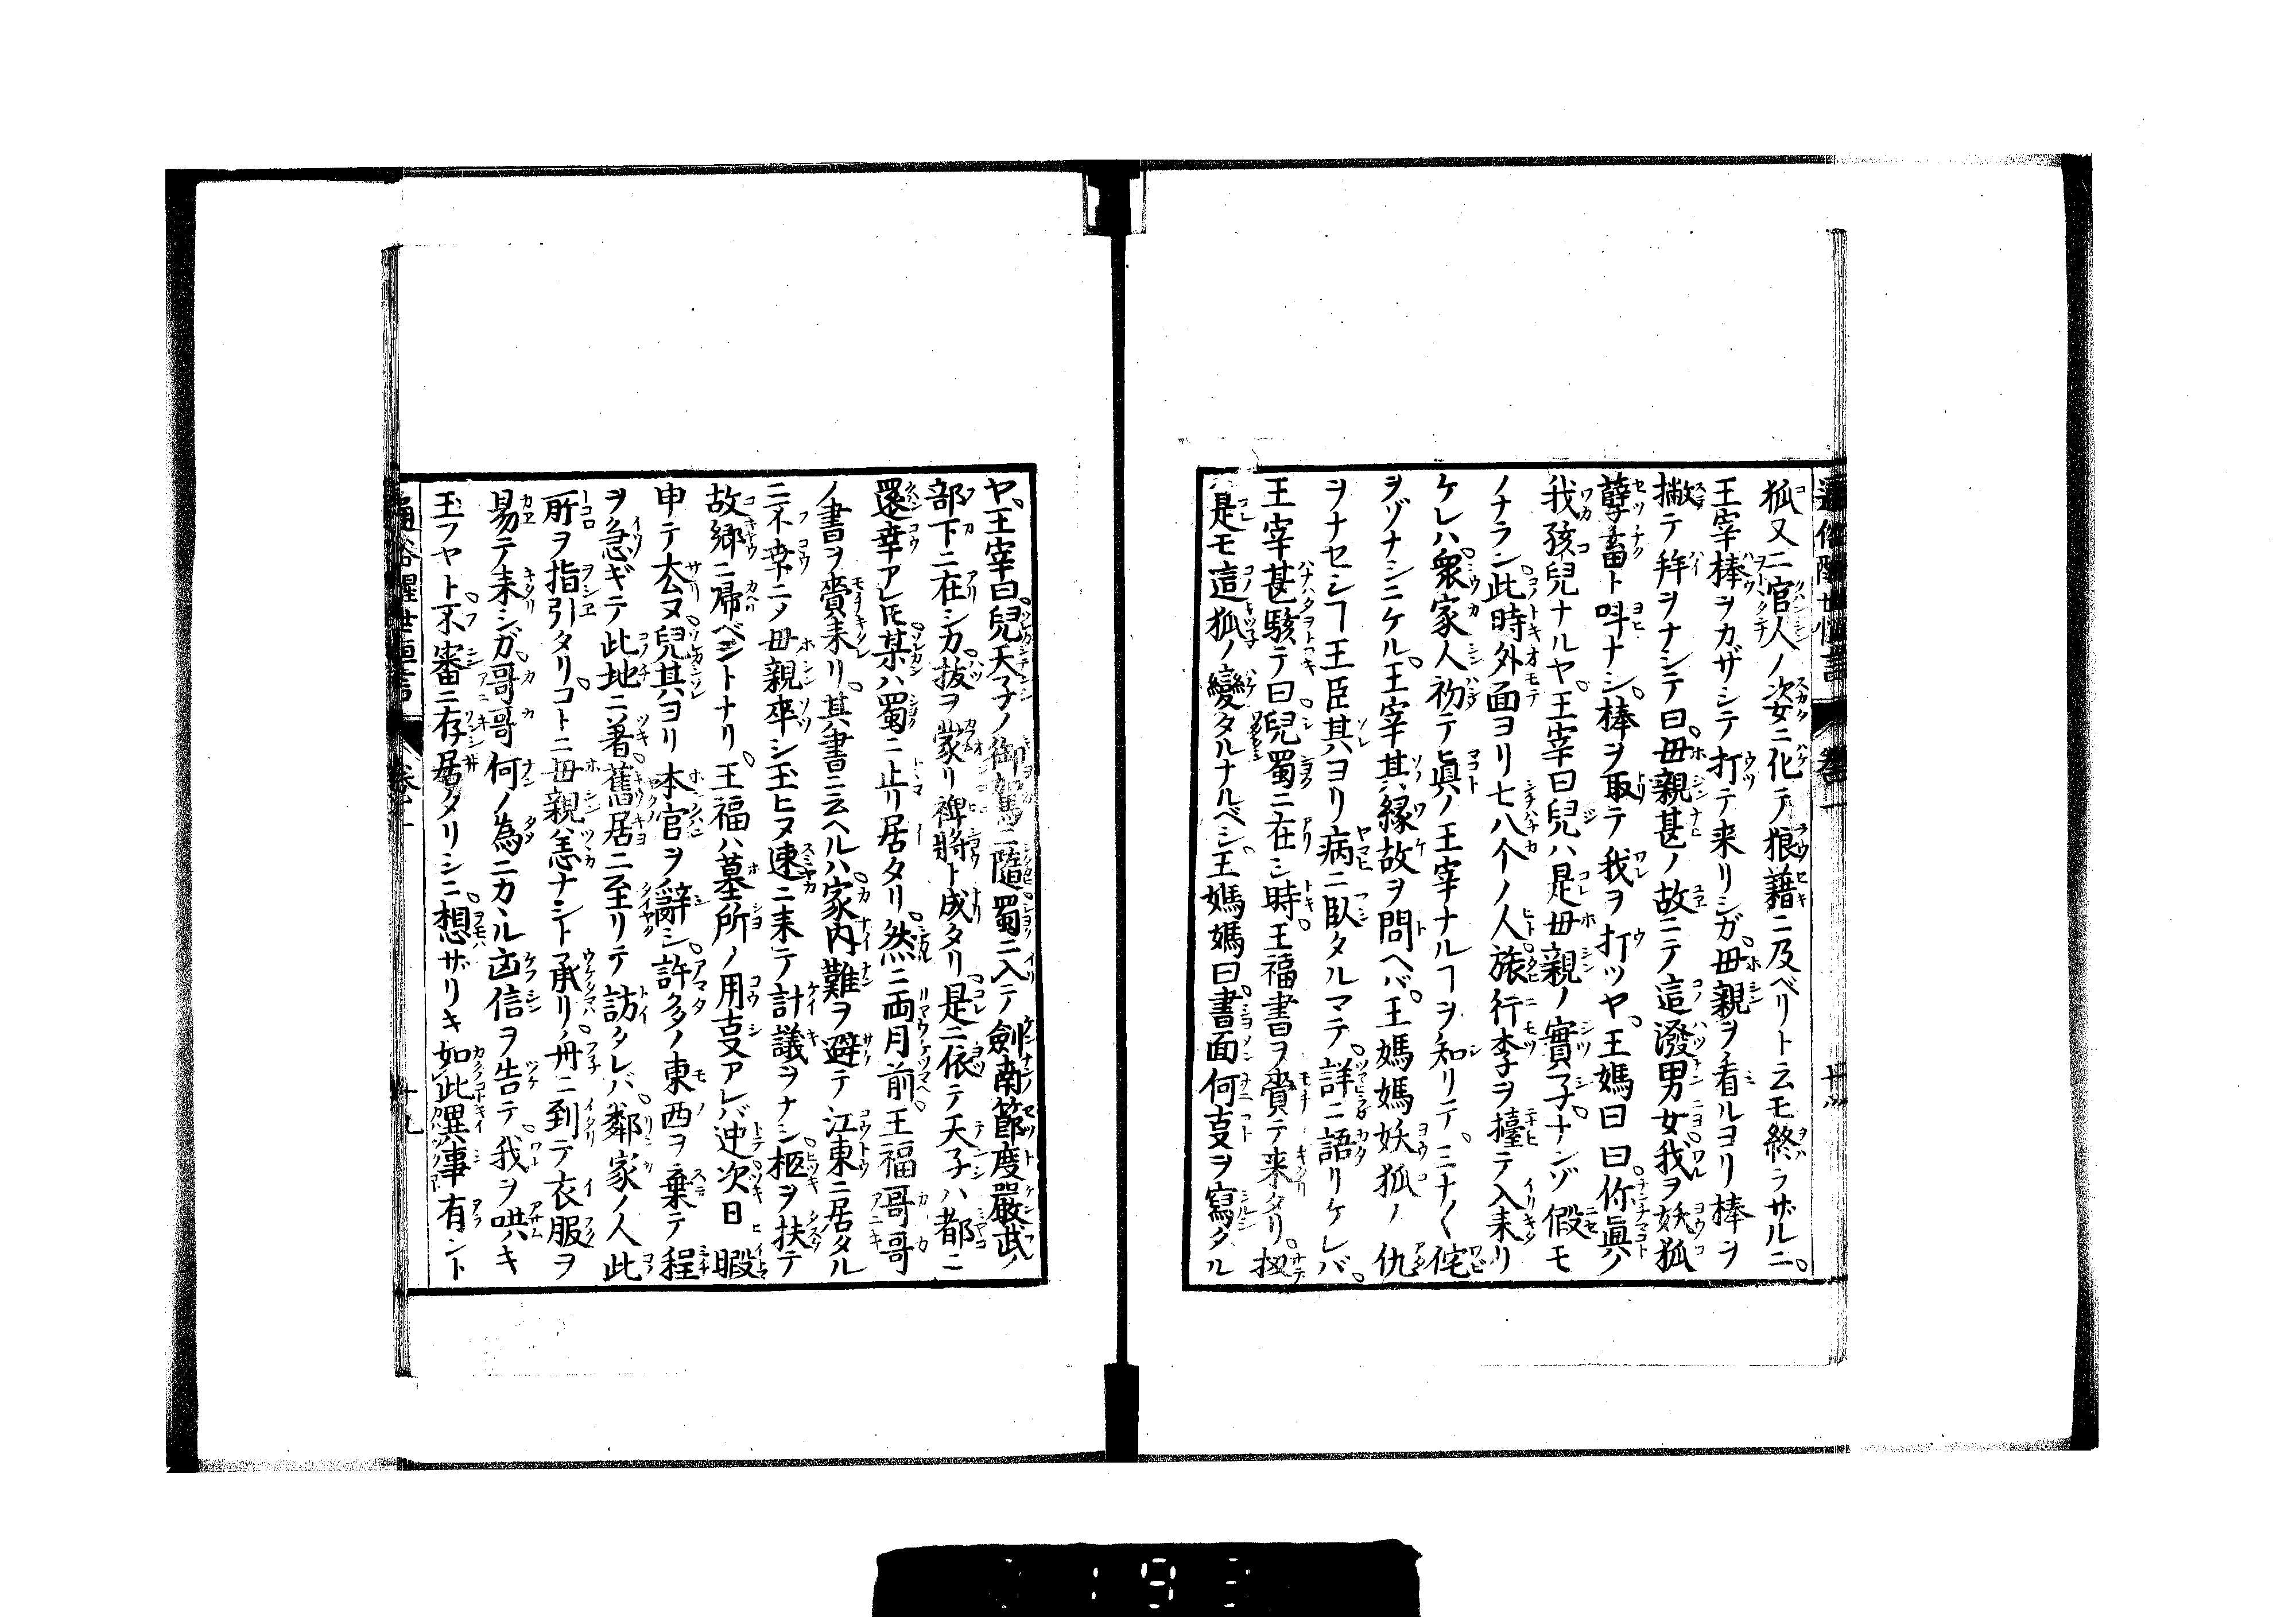 狐又ニ官人ノ姿ニ化テ狼藉ニ及ベリト云モ終ラザルニ。
王宰棒ヲカザシテ打テ来リシガ。毋親ヲ看ルヨリ棒ヲ
撇テ拜ヲナシテ曰。毋親甚ノ故ニテ這潑男女。我ヲ妖狐
孽畜ト呌ナシ。棒ヲ取テ我ヲ打ツヤ。王媽曰曰。你眞ノ
我孩兒ナルヤ。王宰曰兒ハ是毋親ノ實子。ナンゾ假モ
ノナラン。此時外面ヨリ七八个ノ人。旅行李ヲ擡テ入来リ
ケレハ。衆家人初テ眞ノ王宰ナルヿヲ知リテ。ミナ〱侘
ヲゾナシニケル。王宰其縁故ヲ問ヘバ。王媽媽妖狐ノ仇
ヲナセシヿ王臣其ヨリ病ニ臥タルマテ。詳ニ語リケレバ。
王宰甚駭テ曰。兒蜀ニ在シ時。王福書ヲ賫テ来タリ。扨
ハ是モ這狐ノ變タルナルベシ。王媽媽曰。書面何事ヲ寫タル
ヤ。王宰曰。兒天子ノ御駕ニ隨。蜀ニ入テ劍南節度嚴武ノ
部下ニ在シカ。抜ヲ蒙リ裨將ト成タリ。是ニ依テ天子ハ都ニ
還幸アレ𪜈。某ハ蜀ニ止リ居タリ。然ニ両月前。王福哥哥
ノ書ヲ賫来リ。其書ニ云ヘルハ。家内難ヲ避テ江東ニ居タル
ニ不幸ニノ毋親卒シ玉ヒヌ速ニ来テ計議ヲナシ。柩ヲ扶テ
故郷ニ帰ベシトナリ。王福ハ墓所ノ用事アレバ迚。次日暇
申テ去ヌ。兒其ヨリ本官ヲ辭シ。許多ノ東西ヲ棄テ程
ヲ急ギテ此地ニ着。舊居ニ至リテ訪タレバ。鄰家ノ人此
所ヲ指引タリ。コトニ毋親恙ナシト承リ。舟ニ到テ衣服ヲ
易テ来シガ。哥哥何ノ為ニカヽル凶信ヲ告テ。我ヲ哄キ
玉フヤト。不審ニ存居タリシニ。想ザリキ如此異事有ント